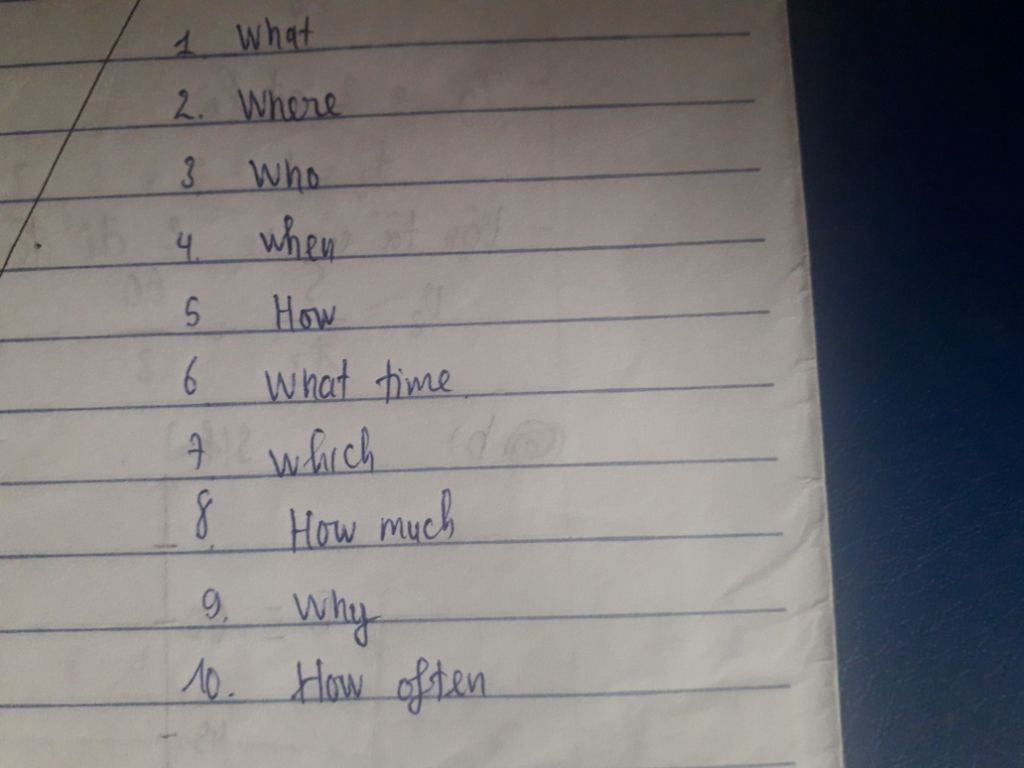 1 What
2. Where
3 Who
4. when
5 How
6 What time
7 which
8. How much
9. Why
10. How often